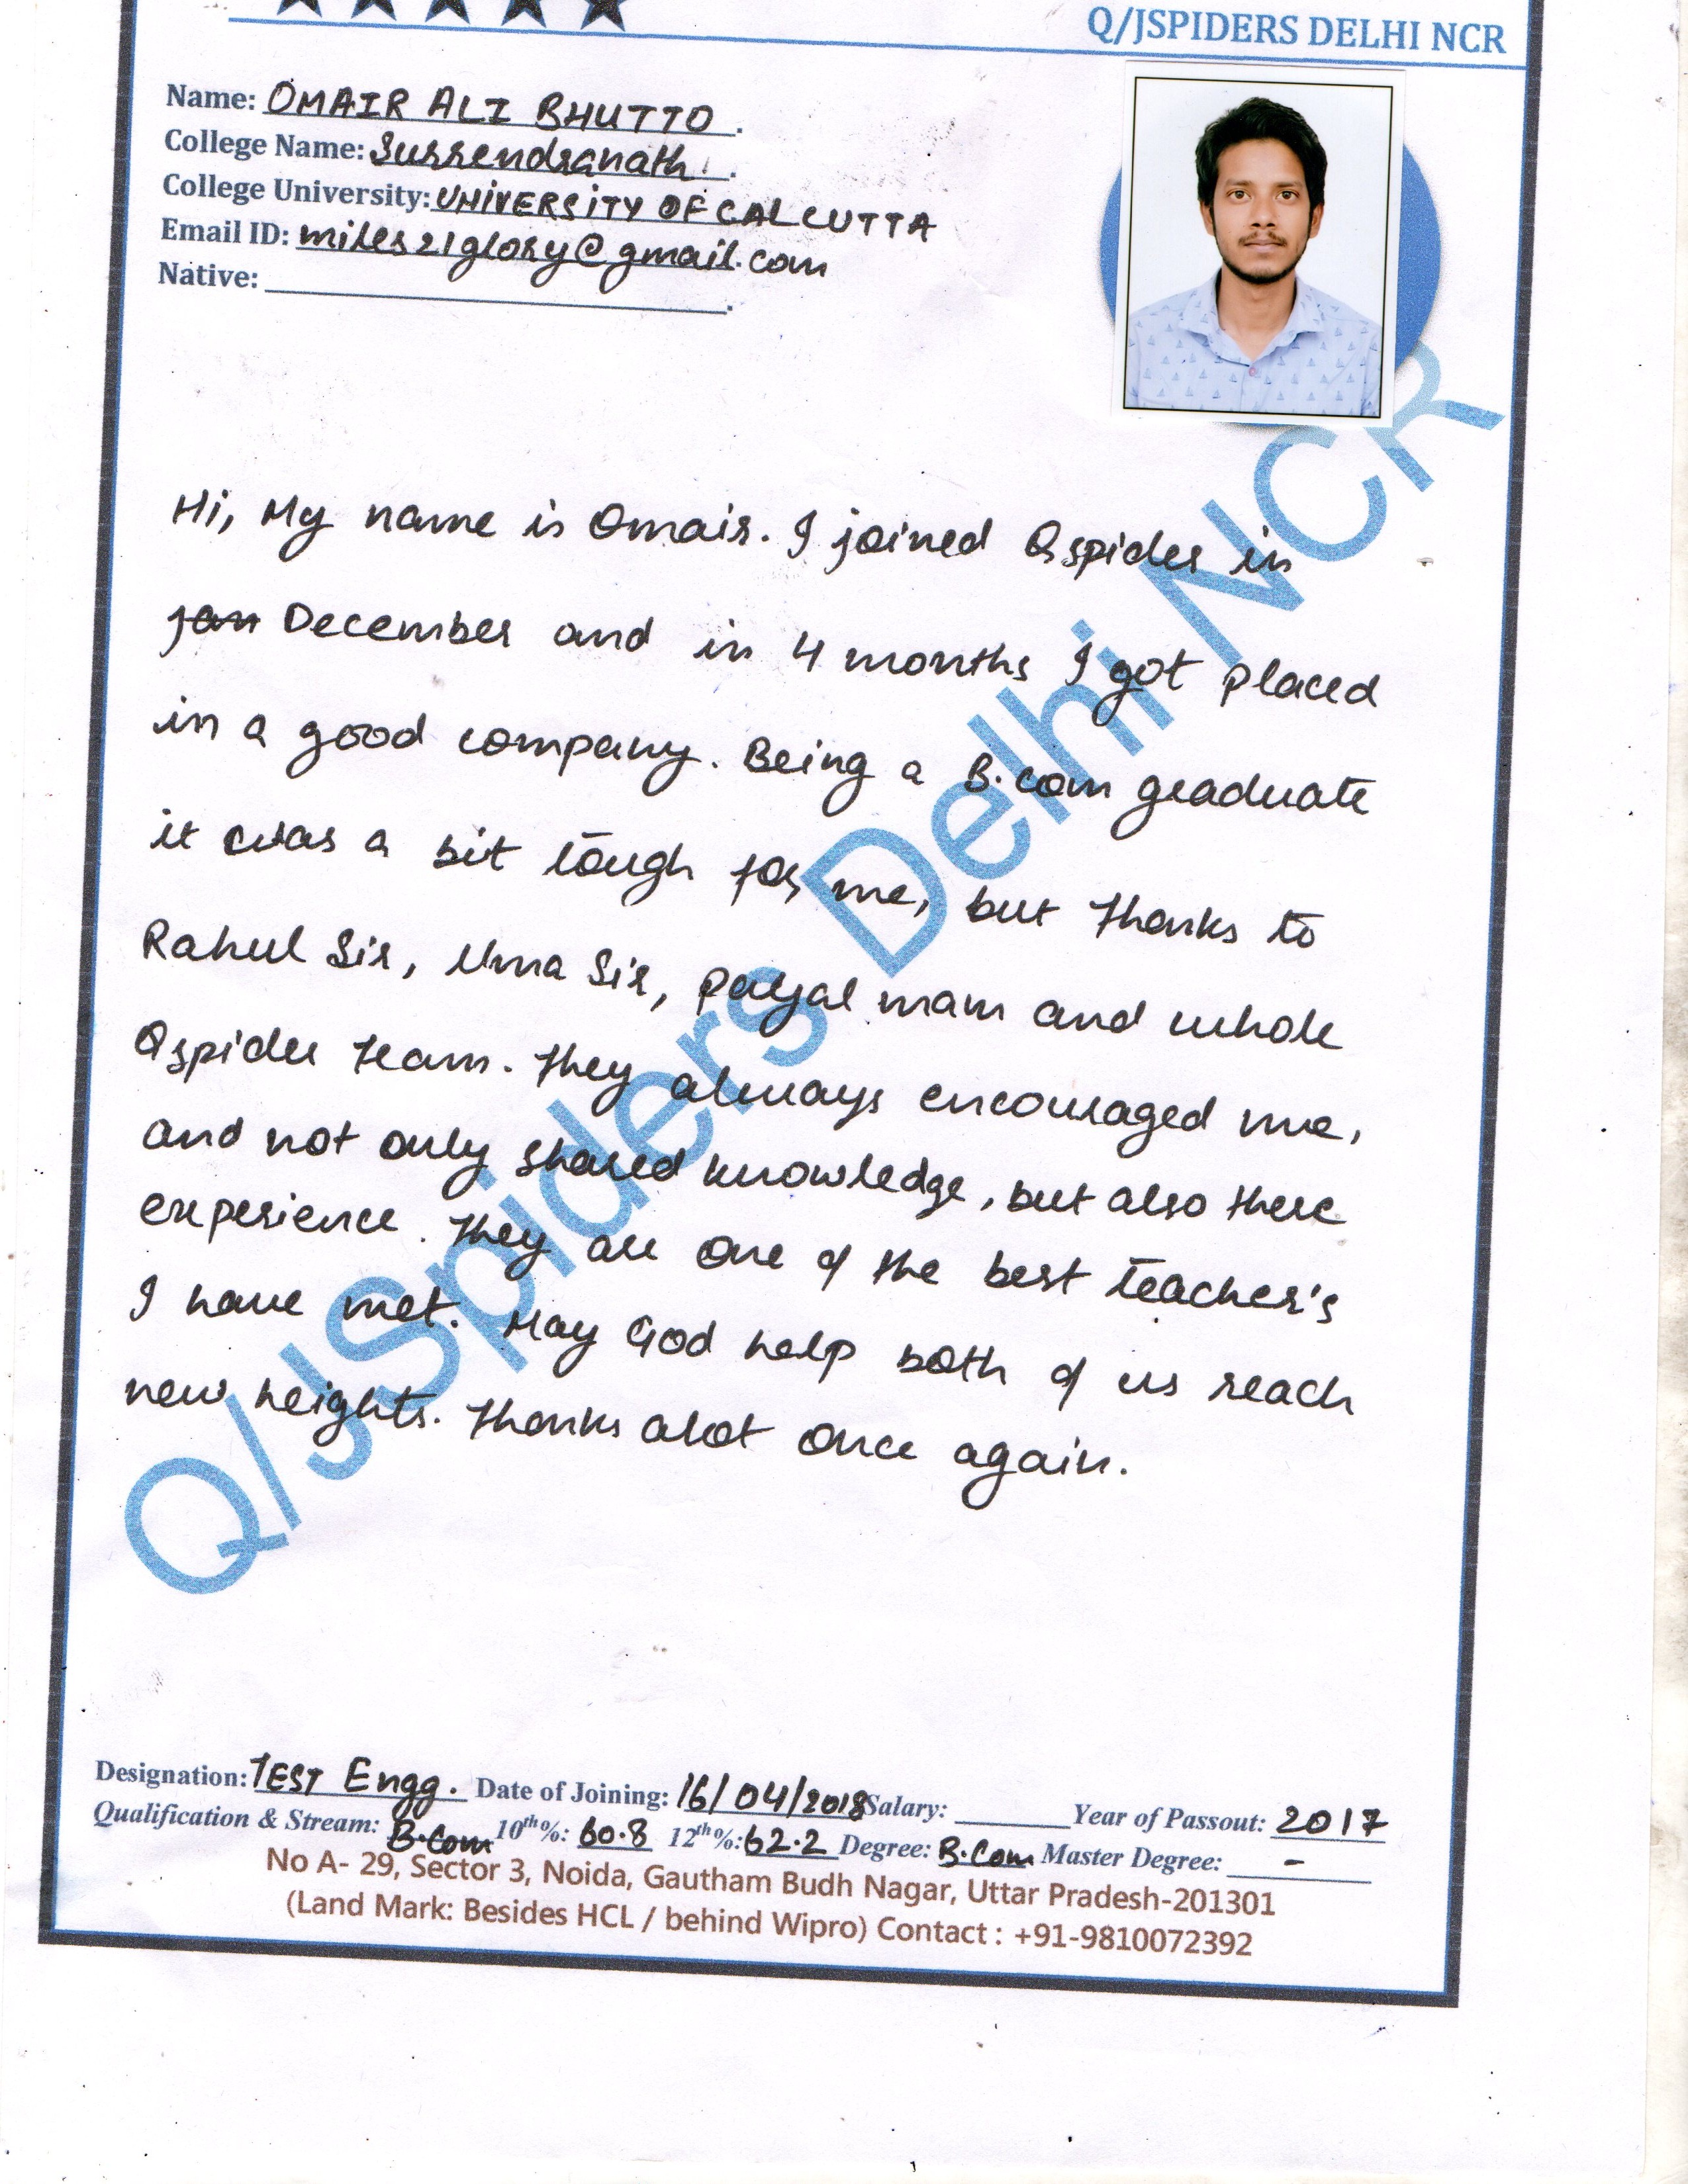 Q/JSPIDERS DELHI NCR
Name: OMAIR ALI BHUTTO.
College Name: Surrendranath.
College University: UNIVERSITY OF CALCUTTA
Email ID: miles21glory@gmail.com
Native: .
Hi, My name is Omair. I joined Qspider in
jan December and in 4 months I got placed
in a good company. Being a B.com graduate
it was a bit tough for me, but thanks to
Rahul Sir, Uma Sir, payal mam and whole
Qspider team. They always encouraged me,
and not only shared knowledge, but also there
experience. They are one of the best teacher's
I have met. May God help both of us reach
new heights. Thanks alot once again.
Q/JSpiders Delhi NCR
Designation: TEST Engg. Date of Joining: 16/04/2018 Salary: Year of Passout: 2017
Qualification & Stream: B.Com 10th%: 60.8 12th%: 62.2 Degree: B.Com Master Degree: -
No A- 29, Sector 3, Noida, Gautham Budh Nagar, Uttar Pradesh-201301
(Land Mark: Besides HCL / behind Wipro) Contact : +91-9810072392